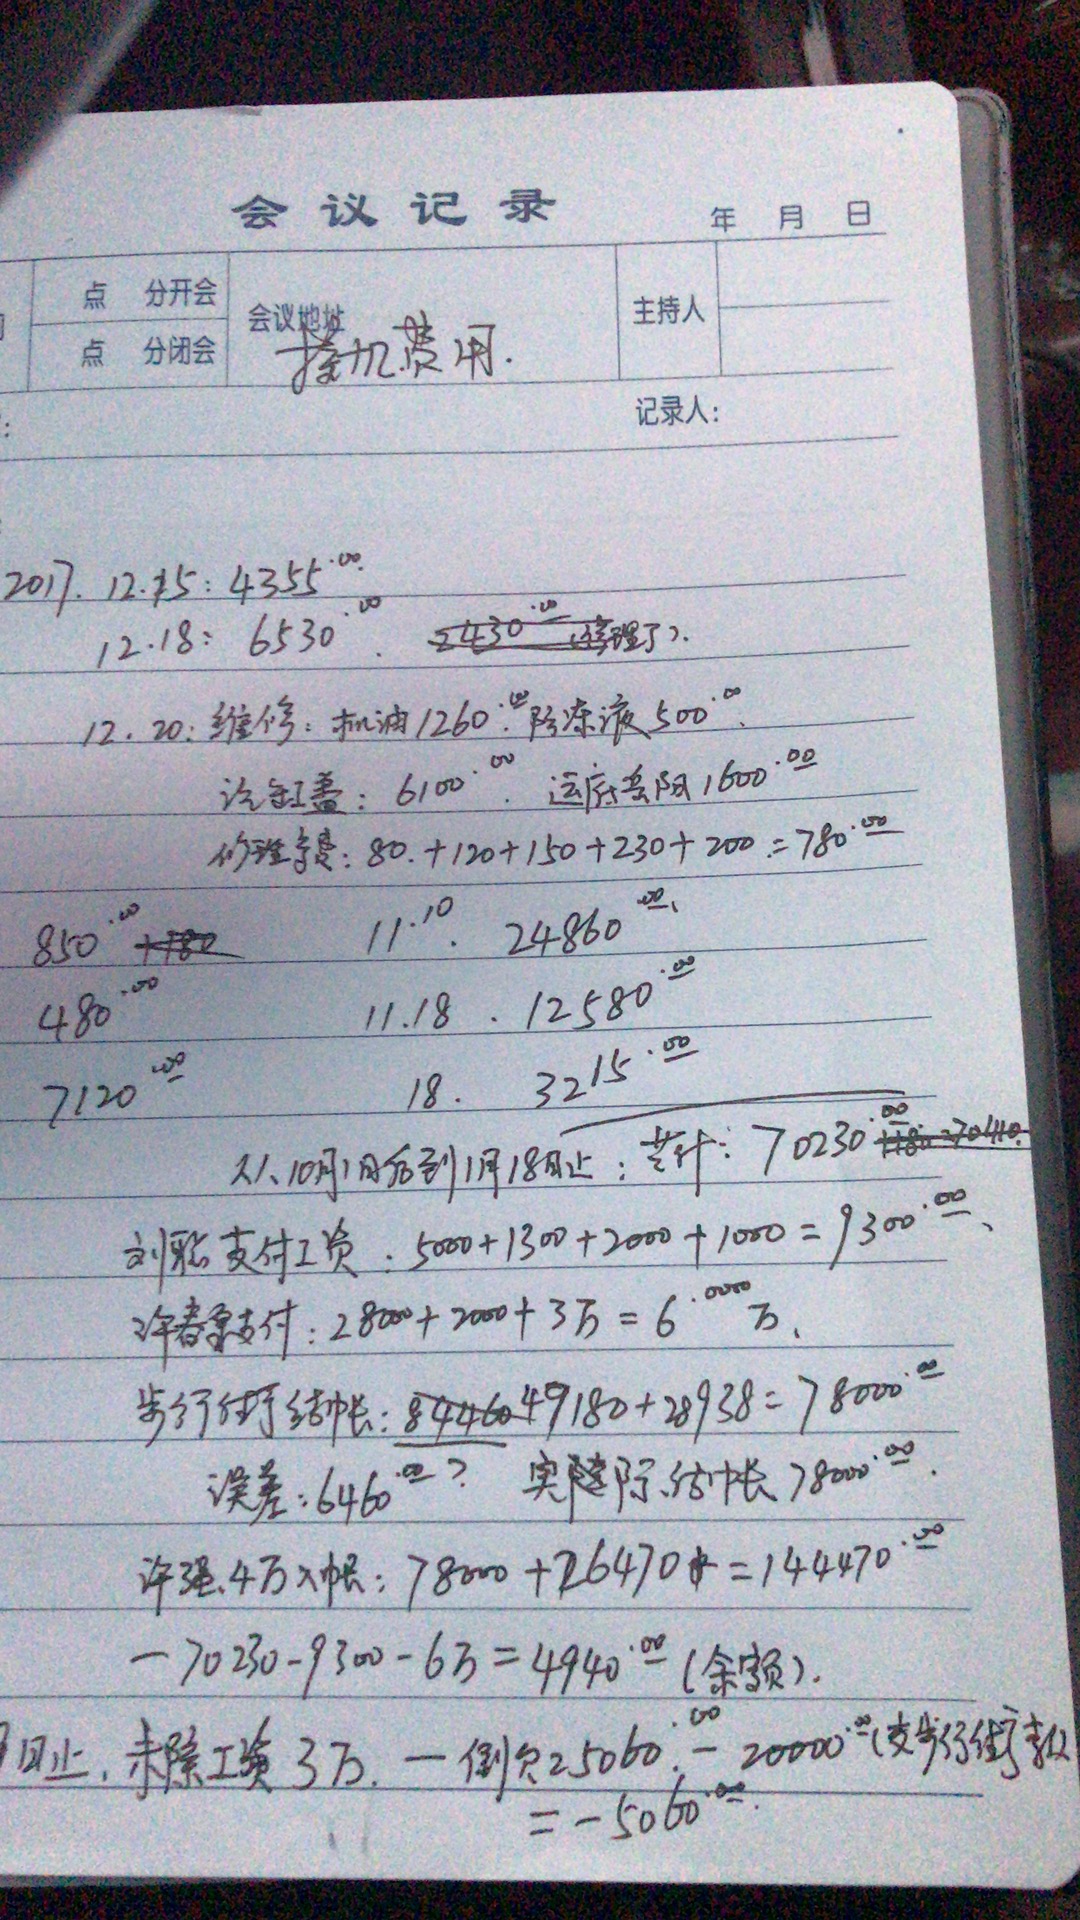 会议记录
年 月 日
点 分开会
会议地址
主持人
点 分闭会
接机费用.
记录人:
2017. 12.15: 4355.00
12.18: 6530.00. 2430.00 (修理了).
12.20: 维修: 机油1260.00 防冻液500.00.
汽缸盖: 6100.00. 运府岳阳1600.00
修理费: 80.+120+150+230+200=780.00
850.00 +180 11.10. 24860.00.
480.00 11.18. 12580.00
7120.00 18. 3215.00
从10月1日后到1月18日止: 共计: 70230.00 +180=70410.
支付工资: 5000+1300+2000+1000=9300.00、
许春 支付: 28000+2000+3万=6.0000万、
步行街结帐: 84460 49180+28938=78000.00
误差: 6460.00? 实际结帐78000.00.
许强4万入帐: 78000+26470 =144470.00
-70230-9300-6万=4940.00(余额).
日止, 未除工资3万. 一倒欠25060.00-20000.00(支步行街
=-5060.00.